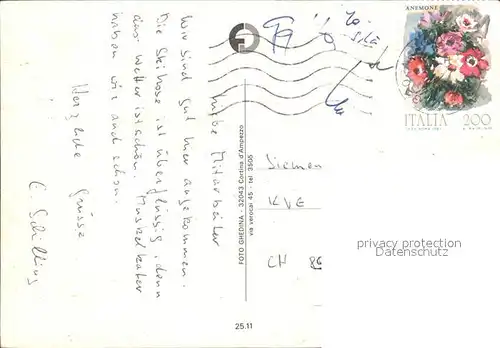 Liebe Mitarbeiter
Wir sind gut hier angekommen.
Die Skihose ist überflüssig, denn
das Wetter ist schön. Muskelkater
haben wir auch schon.
Herzliche Grüsse
C. Schilling
FOTO GHEDINA - 32043 Cortina d'Ampezzo
via verocai 45 - tel 3505
25.11
ANEMONE
ITALIA 200
Siemens
KVE
CH
privacy protection
Datenschutz